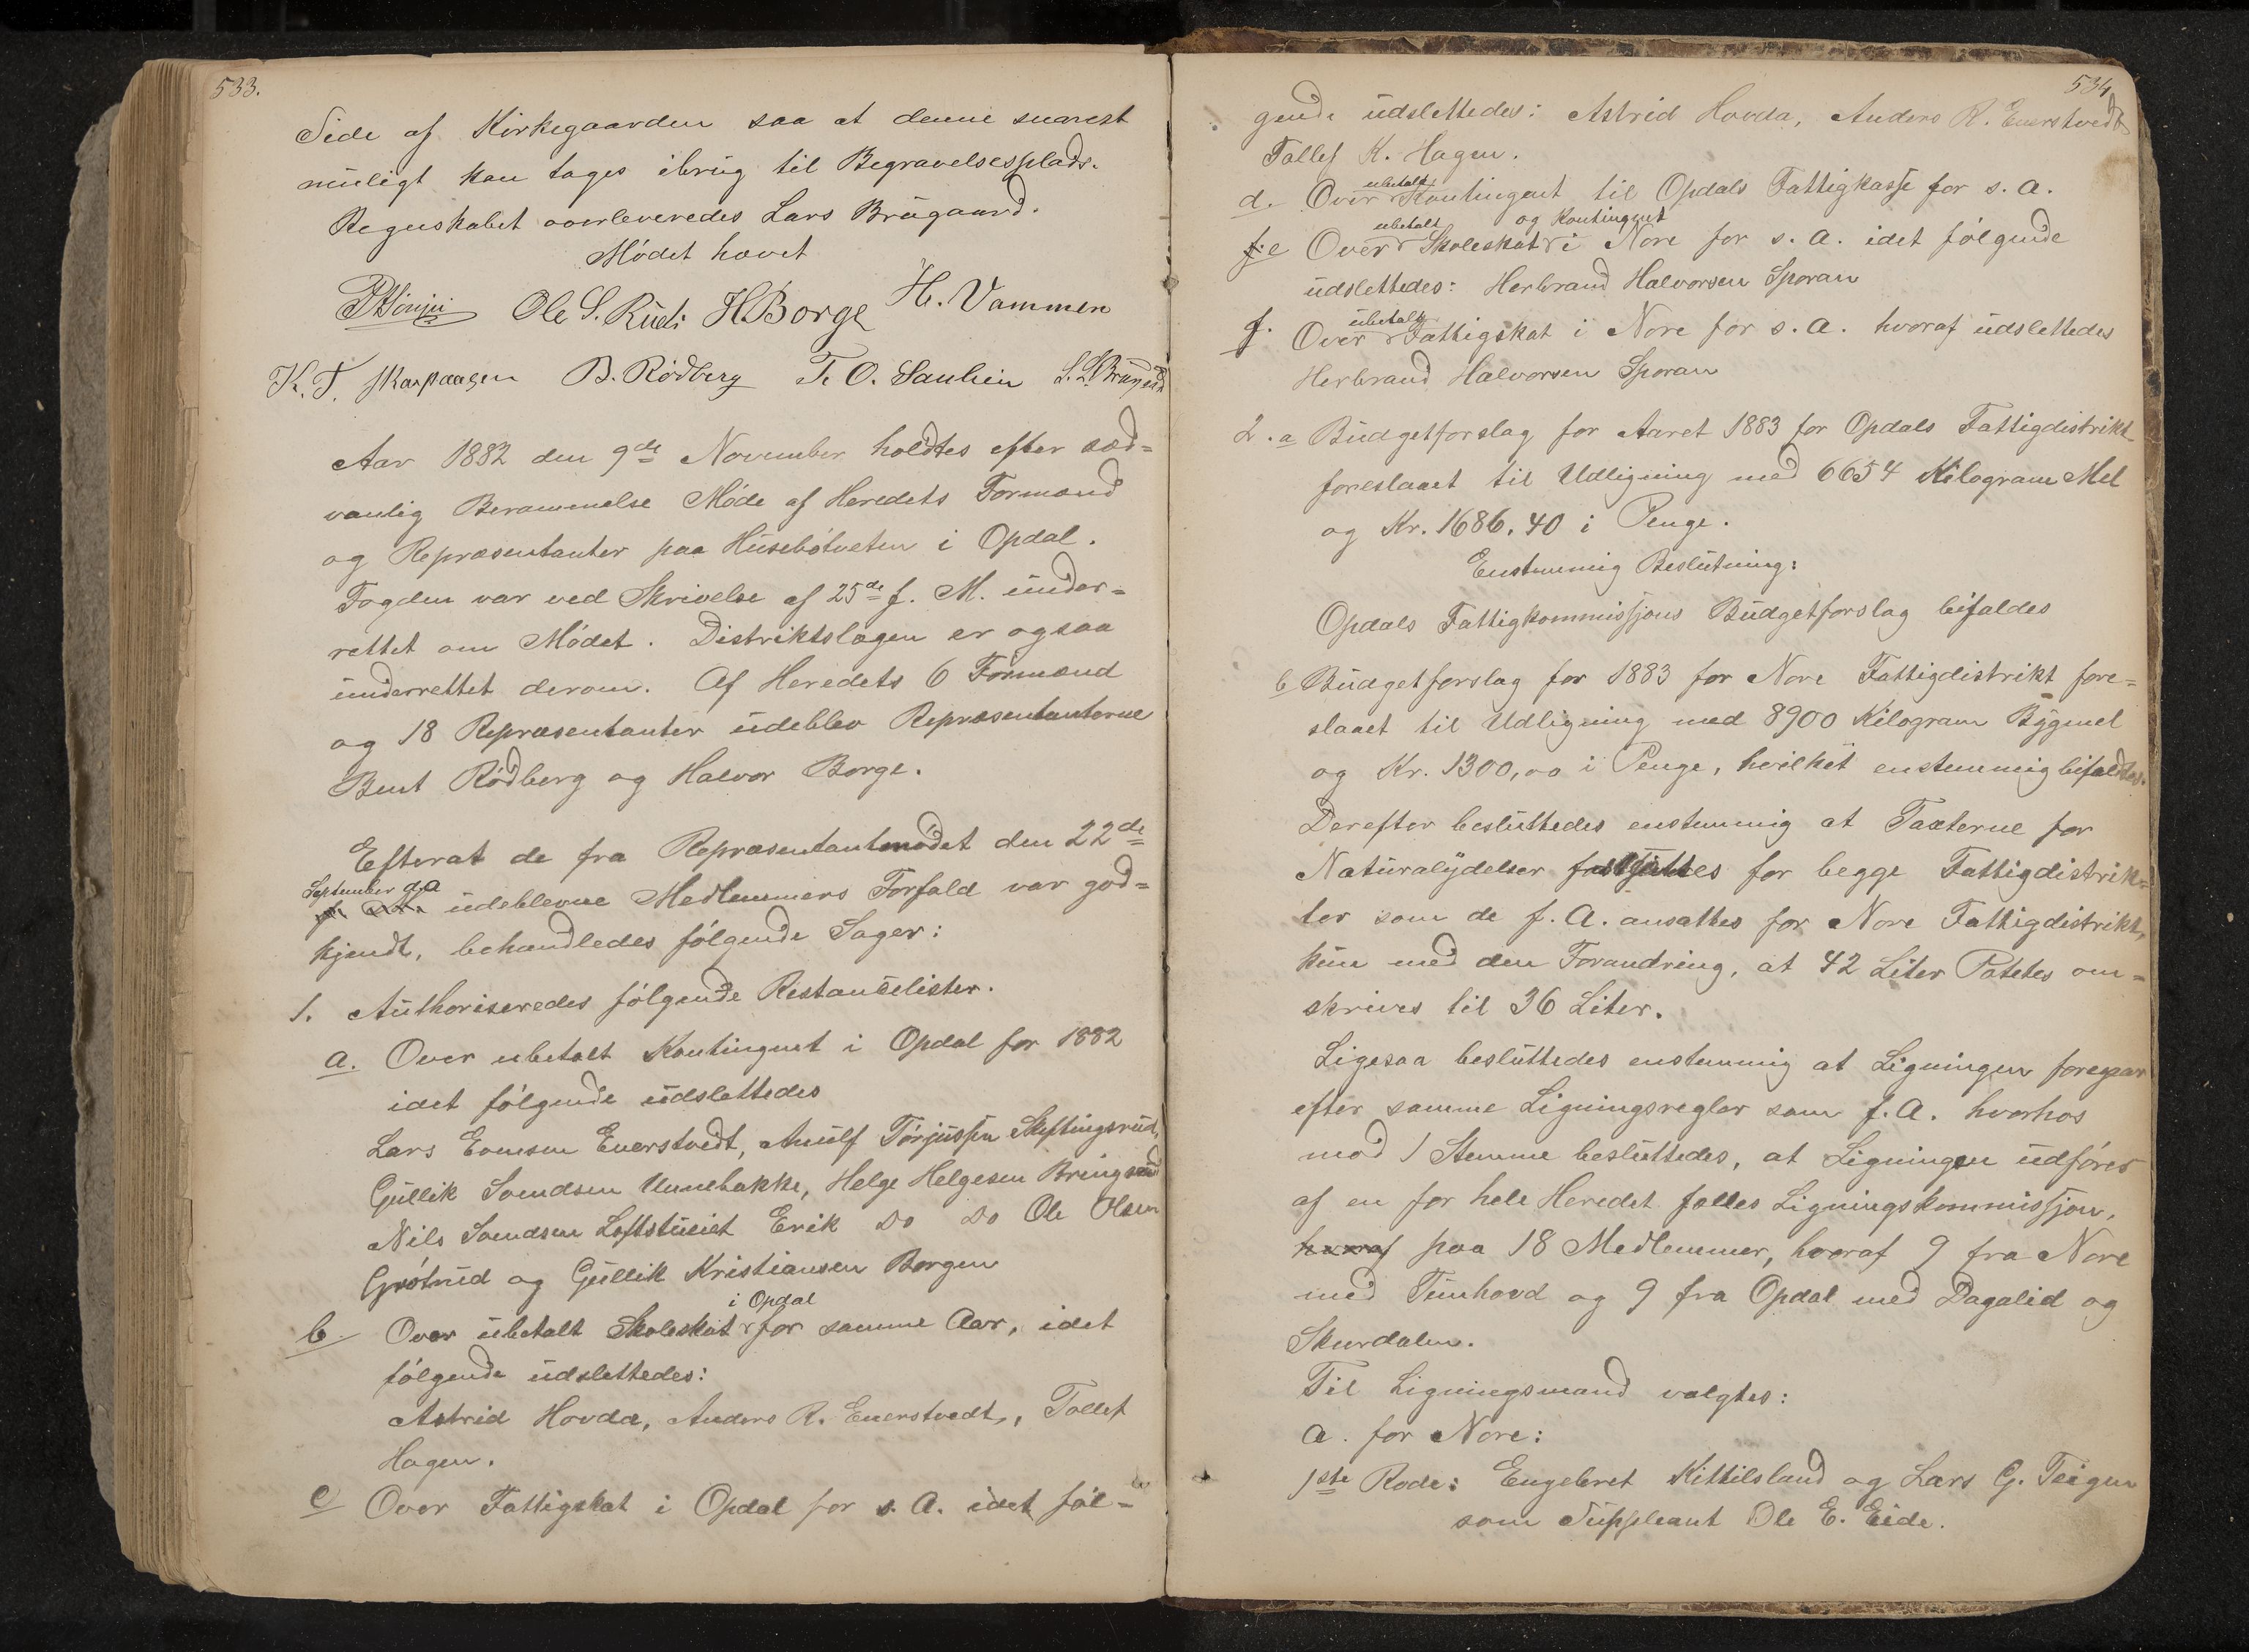 533.
Side af Kirkegaarden saa at denne snarest
muligt kan tages ibrug til Begravelsesplads.
Regnskabet overleveredes Lars Brugaard.
Mødet hævet
Ole S. Rudi H. Borge H. Vammen
K. T. Skarpaasen B. Rødberg T. O. Sauhein
Aar 1882 den 9de November holdtes efter sæd=
vanlig Berammelse Møde af Heredets Formænd
og Repræsentanter paa Husebøtveten i Opdal.
Fogden var ved Skrivelse af 25de f. M. under=
rettet om Mødet. Distriktslægen er ogsaa
underrettet derom. Af Heredets 6 Formænd
og 18 Repræsentanter udeblev Repræsentanterne
Bent Rødberg og Halvor Borge.
Efterat de fra Repræsentantmødet den 22de
September d. A
udeblevne Medlemmers Forfald var god=
kjendt, behandledes følgende Sager:
1. Authoriseredes følgende Restancelister.
a. Over ubetalt Kontingent i Opdal for 1882
idet følgende udslettedes
Lars Evensen Enerstvedt, Anulf Torjussen Skiftingsrud,
Gullik Svendsen Unnebakke, Helge Helgesen Bringsrud
Nils Svendsen Loftstueiet Erik Do Do Ole Olsen
Grøtrud og Gullik Kristiansen Borgen
i Opdal
b Over ubetalt Skoleskat for samme Aar, idet
følgende udslettedes:
Astrid Hovda, Anders R. Enerstvedt, Tollef
Hagen.
c Over Fattigskat i Opdal for s. A. idet føl=
534
gende udslettedes: Astrid Hovda, Anders R. Enerstvedt
Tollef K. Hagen.
ubetalt
d. Over Kontingent til Opdals Fattigkasse for s. A.
ubetalt og Kontingent
e Over Skoleskat i Nore for s. A. idet følgende
udslettedes: Herbrand Halvorsen Sporan
ubetalt
f. Over Fattigskat i Nore for s. A. hvoraf udslettedes
Herbrand Halvorsen Sporan
2. a Budgetforslag for Aaret 1883 for Opdals Fattigdistrikt
foreslaaet til Udligning med 6654 Kilogram Mel
og Kr. 1686.40 i Penge.
Enstemmig Beslutning:
Opdals Fattigkommissjons Budgetforslag bifaldes
b Budgetforslag for 1883 for Nore Fattigdistrikt fore=
slaaet til Udligning med 8900 Kilogram Bygmel
og Kr. 1300,00 i Penge, hvilket enstemmig bifaldtes.
Derefter besluttedes enstemmig at Taxterne for
Naturalydelser fastsættes for begge Fattigdistrik=
ter som de f. A. ansattes for Nore Fattigdistrikt,
kun med den Forandring, at 42 Liter Potetes om=
skrives til 36 Liter.
Ligesaa besluttedes enstemmig at Ligningen foregaar
efter samme Ligningsregler som f. A. hvorhos
mod 1 Stemme besluttedes, at Ligningen udføres
af en for hele Heredet fælles Ligningskommissjon,
hvoraf paa 18 Medlemmer, hvoraf 9 fra Nore
med Tunhovd og 9 fra Opdal med Dagalid og
Skurdalen.
Til Ligningsmænd valgtes:
a. for Nore:
1ste Rode: Engebret Kittilsland og Lars G. Teigen
som Suppleant Ole E. Eide.